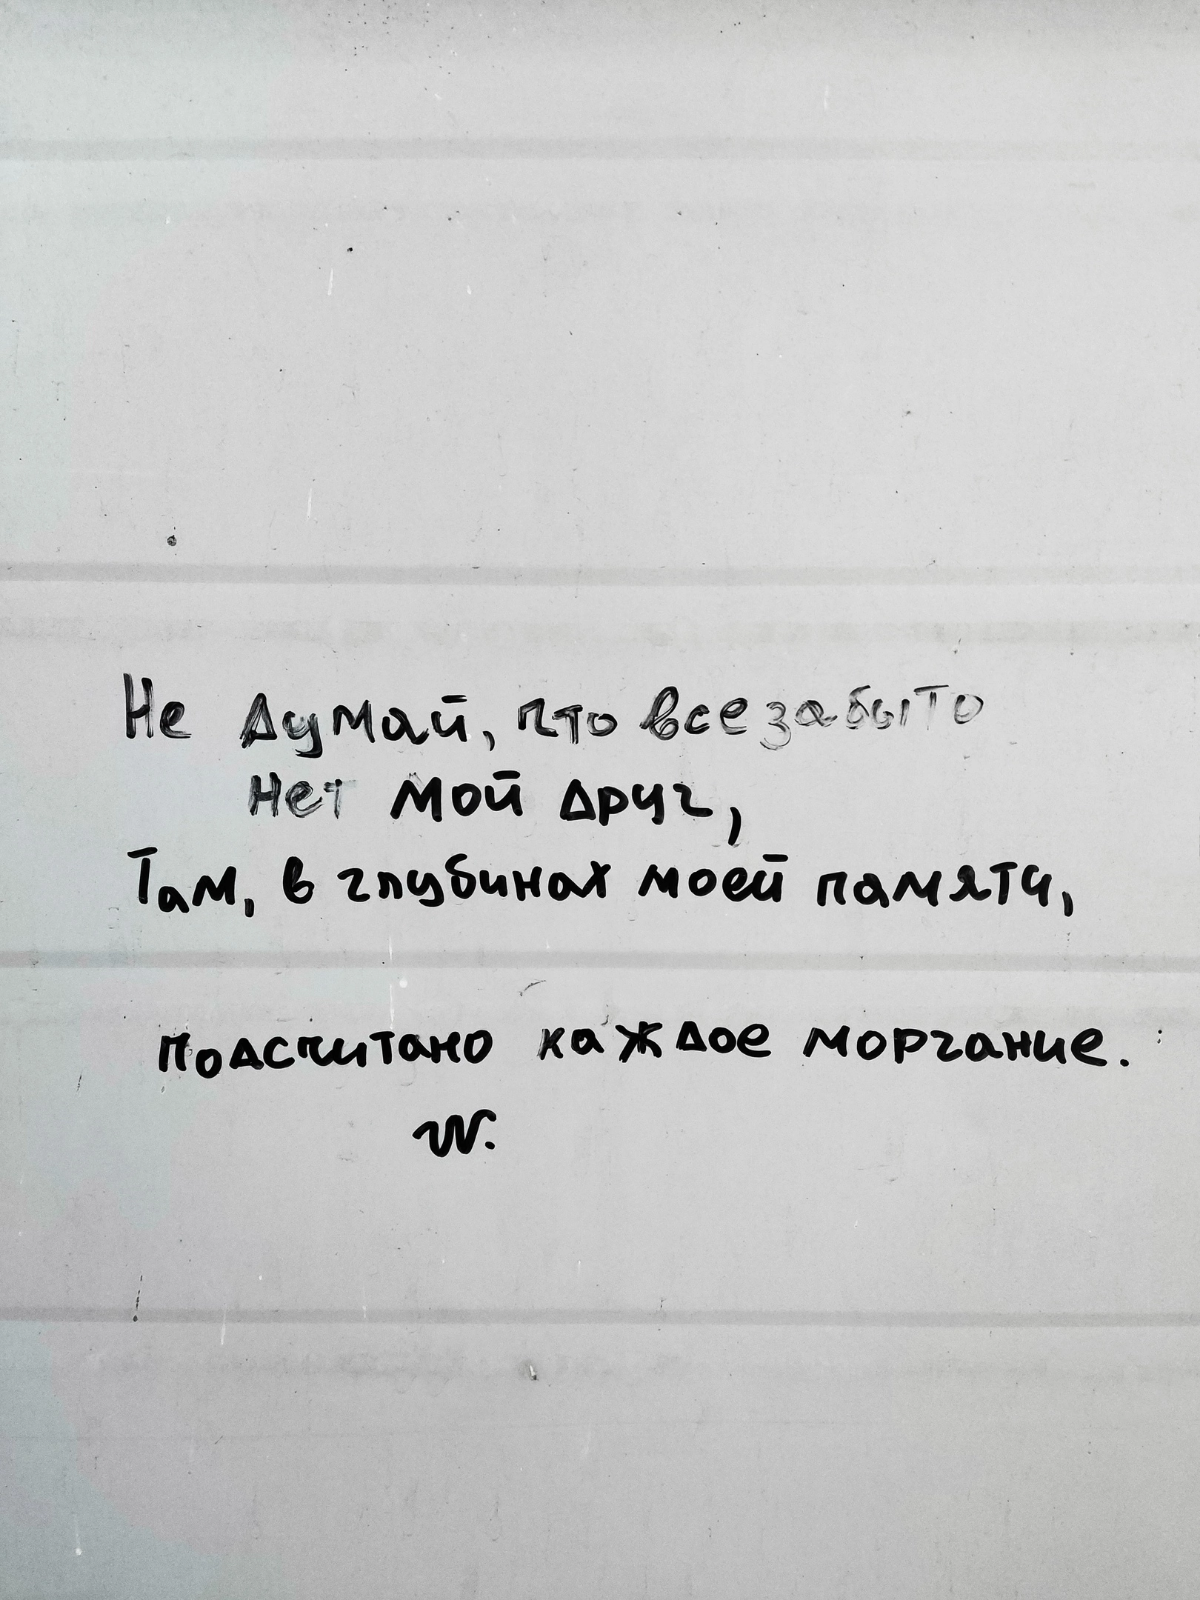 Не думай, что все забыто
Нет мой друг,
Там, в глубинах моей памяти,
подсчитано каждое моргание.
W.